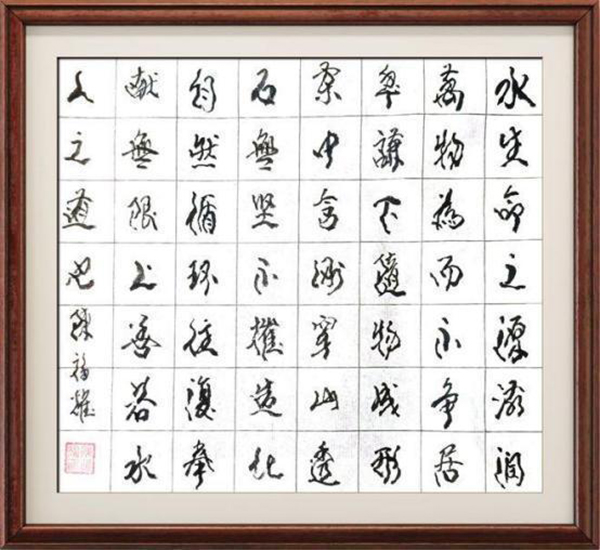 水生命之源滋潤
萬物為而不爭居
卑謙下隨物成形
柔中含剛穿山透
石無堅不摧造化
自然循環往復奉
獻無限上善若水
人之道也 陳福